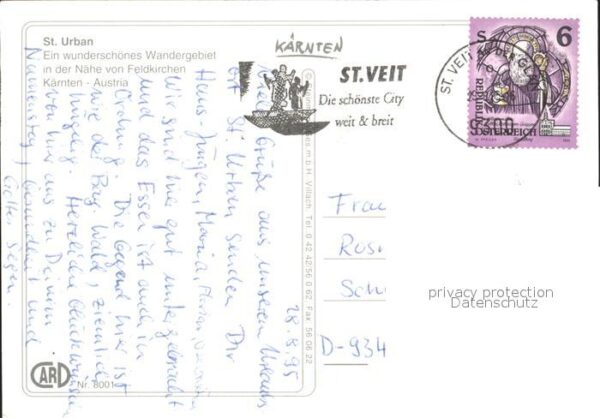 St. Urban
Ein wunderschönes Wandergebiet
in der Nähe von Feldkirchen
Kärnten - Austria
KÄRNTEN
ST.VEIT
Die schönste City
weit & breit
ST. VEIT AN DER GLAN
9300
S 6
REPUBLIK
ÖSTERREICH
28.8.95
Viele Grüße aus unserem Urlaubs
ort St. Urban senden Dir
Hans-Jürgen, Maria,
Wir sind hier gut untergebracht
und das Essen ist auch in
Ordnung. Die Gegend hier ist
wie der Bay. Wald, ziemlich
hügelig. Herzliche Glückwünsche
von uns zu Deinem
Namenstag, Gesundheit und
Gottes Segen.
m.b.H. Villach Tel. 0 42 42 56 0 62 Fax 56 06 22
Frau
Rosi
Sch
D-934
privacy protection
Datenschutz
CARD
Nr. 8001